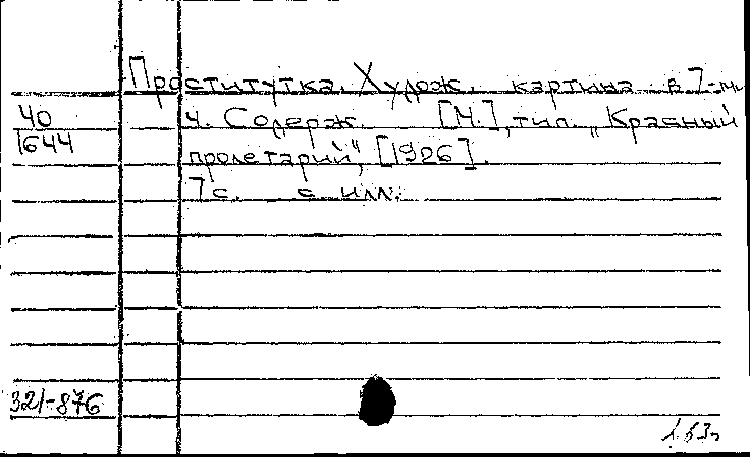 Проститутка. Худож. картина в 7-ми
40
1644
ч. Содерж. [М.], тип. „Красный
пролетарий", [1926].
7 с. с илл.
321-876